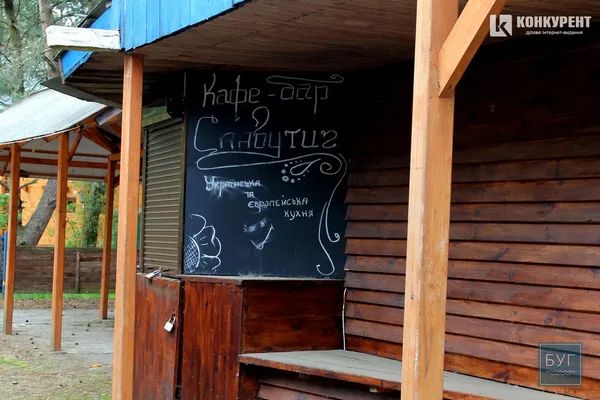 КОНКУРЕНТ
ділове інтернет-видання
Кафе-бар
Славутич
Українська
та
європейська
кухня
БУГ